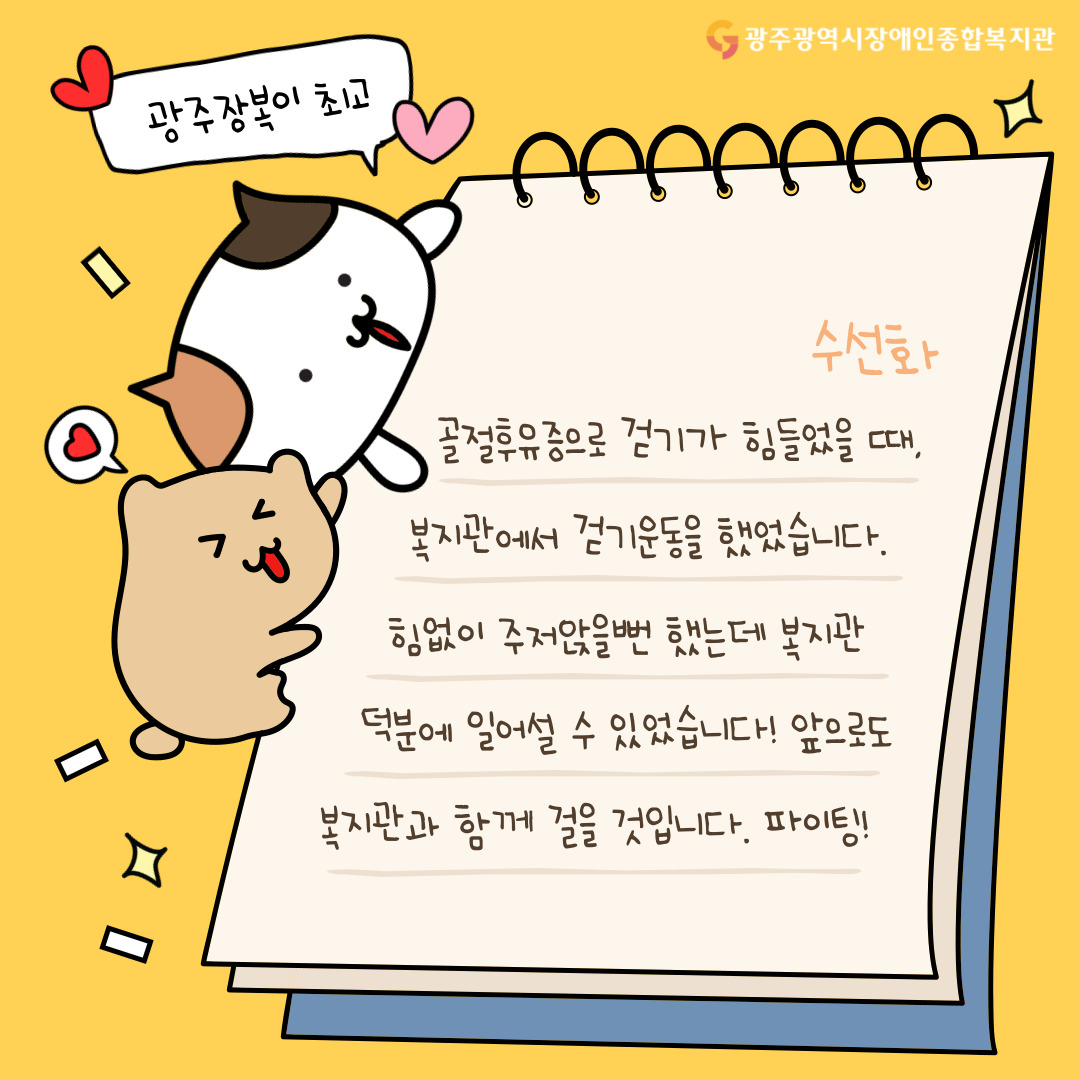 광주광역시장애인종합복지관
광주장복이 최고
수선화
골절후유증으로 걷기가 힘들었을 때,
복지관에서 걷기운동을 했었습니다.
힘없이 주저앉을뻔 했는데 복지관
덕분에 일어설 수 있었습니다! 앞으로도
복지관과 함께 걸을 것입니다. 파이팅!